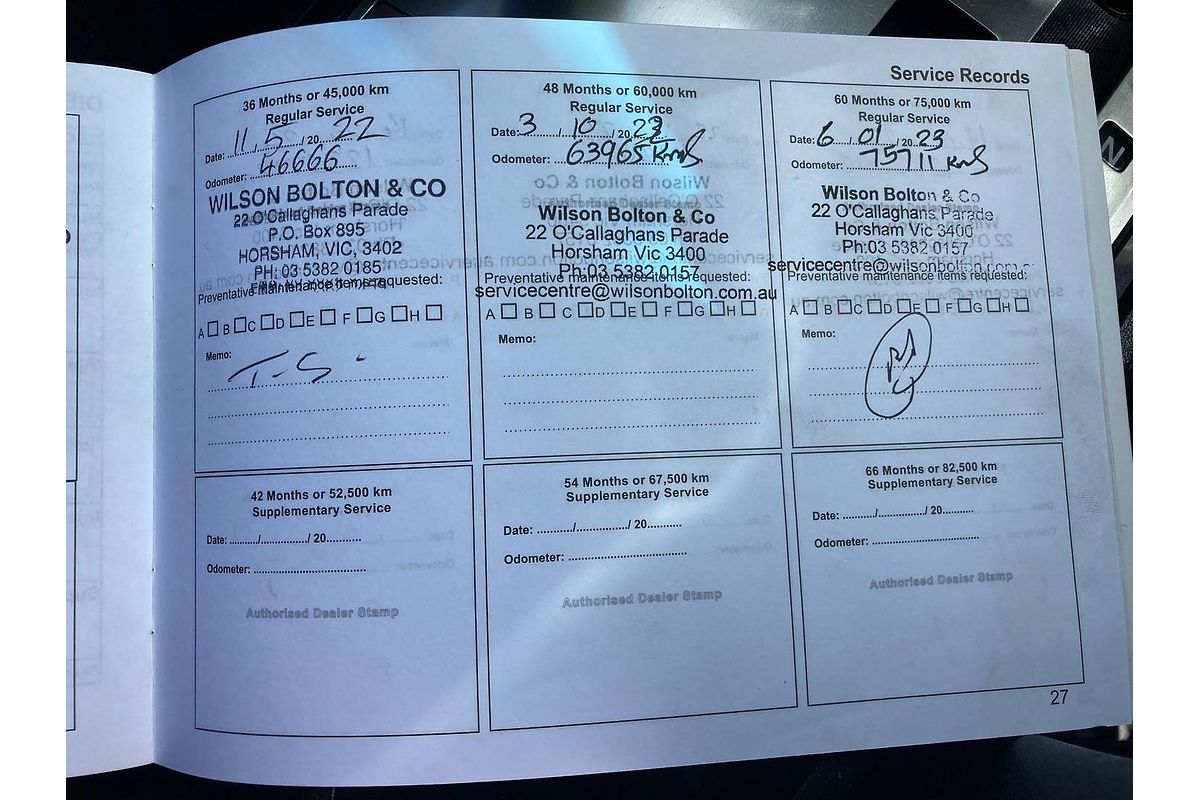 Service Records
36 Months or 45,000 km
Regular Service
Date: 11 / 5 / 20 22
Odometer: 46666
WILSON BOLTON & CO
22 O'Callaghans Parade
P.O. Box 895
HORSHAM, VIC, 3402
PH: 03 5382 0185
Preventative maintenance items requested:
A B C D E F G H
Memo:
T-S -
48 Months or 60,000 km
Regular Service
Date: 3 / 10 / 20
Odometer: 63965 Kms
Wilson Bolton & Co
22 O'Callaghans Parade
Horsham Vic 3400
Ph:03 5382 0157
Preventative maintenance items requested:
servicecentre@wilsonbolton.com.au
A B C D E F G H
Memo:
60 Months or 75,000 km
Regular Service
Date: 6 / 01 / 20 23
Odometer: 75711 Kms
Wilson Bolton & Co
22 O'Callaghans Parade
Horsham Vic 3400
Ph:03 5382 0157
servicecentre@wilsonbolton.com
Preventative maintenance items requested:
A B C D E F G H
Memo:
42 Months or 52,500 km
Supplementary Service
Date: ........./................/ 20...........
Odometer: ....................................
Authorised Dealer Stamp
54 Months or 67,500 km
Supplementary Service
Date: ........./................/ 20...........
Odometer: ....................................
Authorised Dealer Stamp
66 Months or 82,500 km
Supplementary Service
Date: ........./................/ 20...........
Odometer: ....................................
Authorised Dealer Stamp
27
N